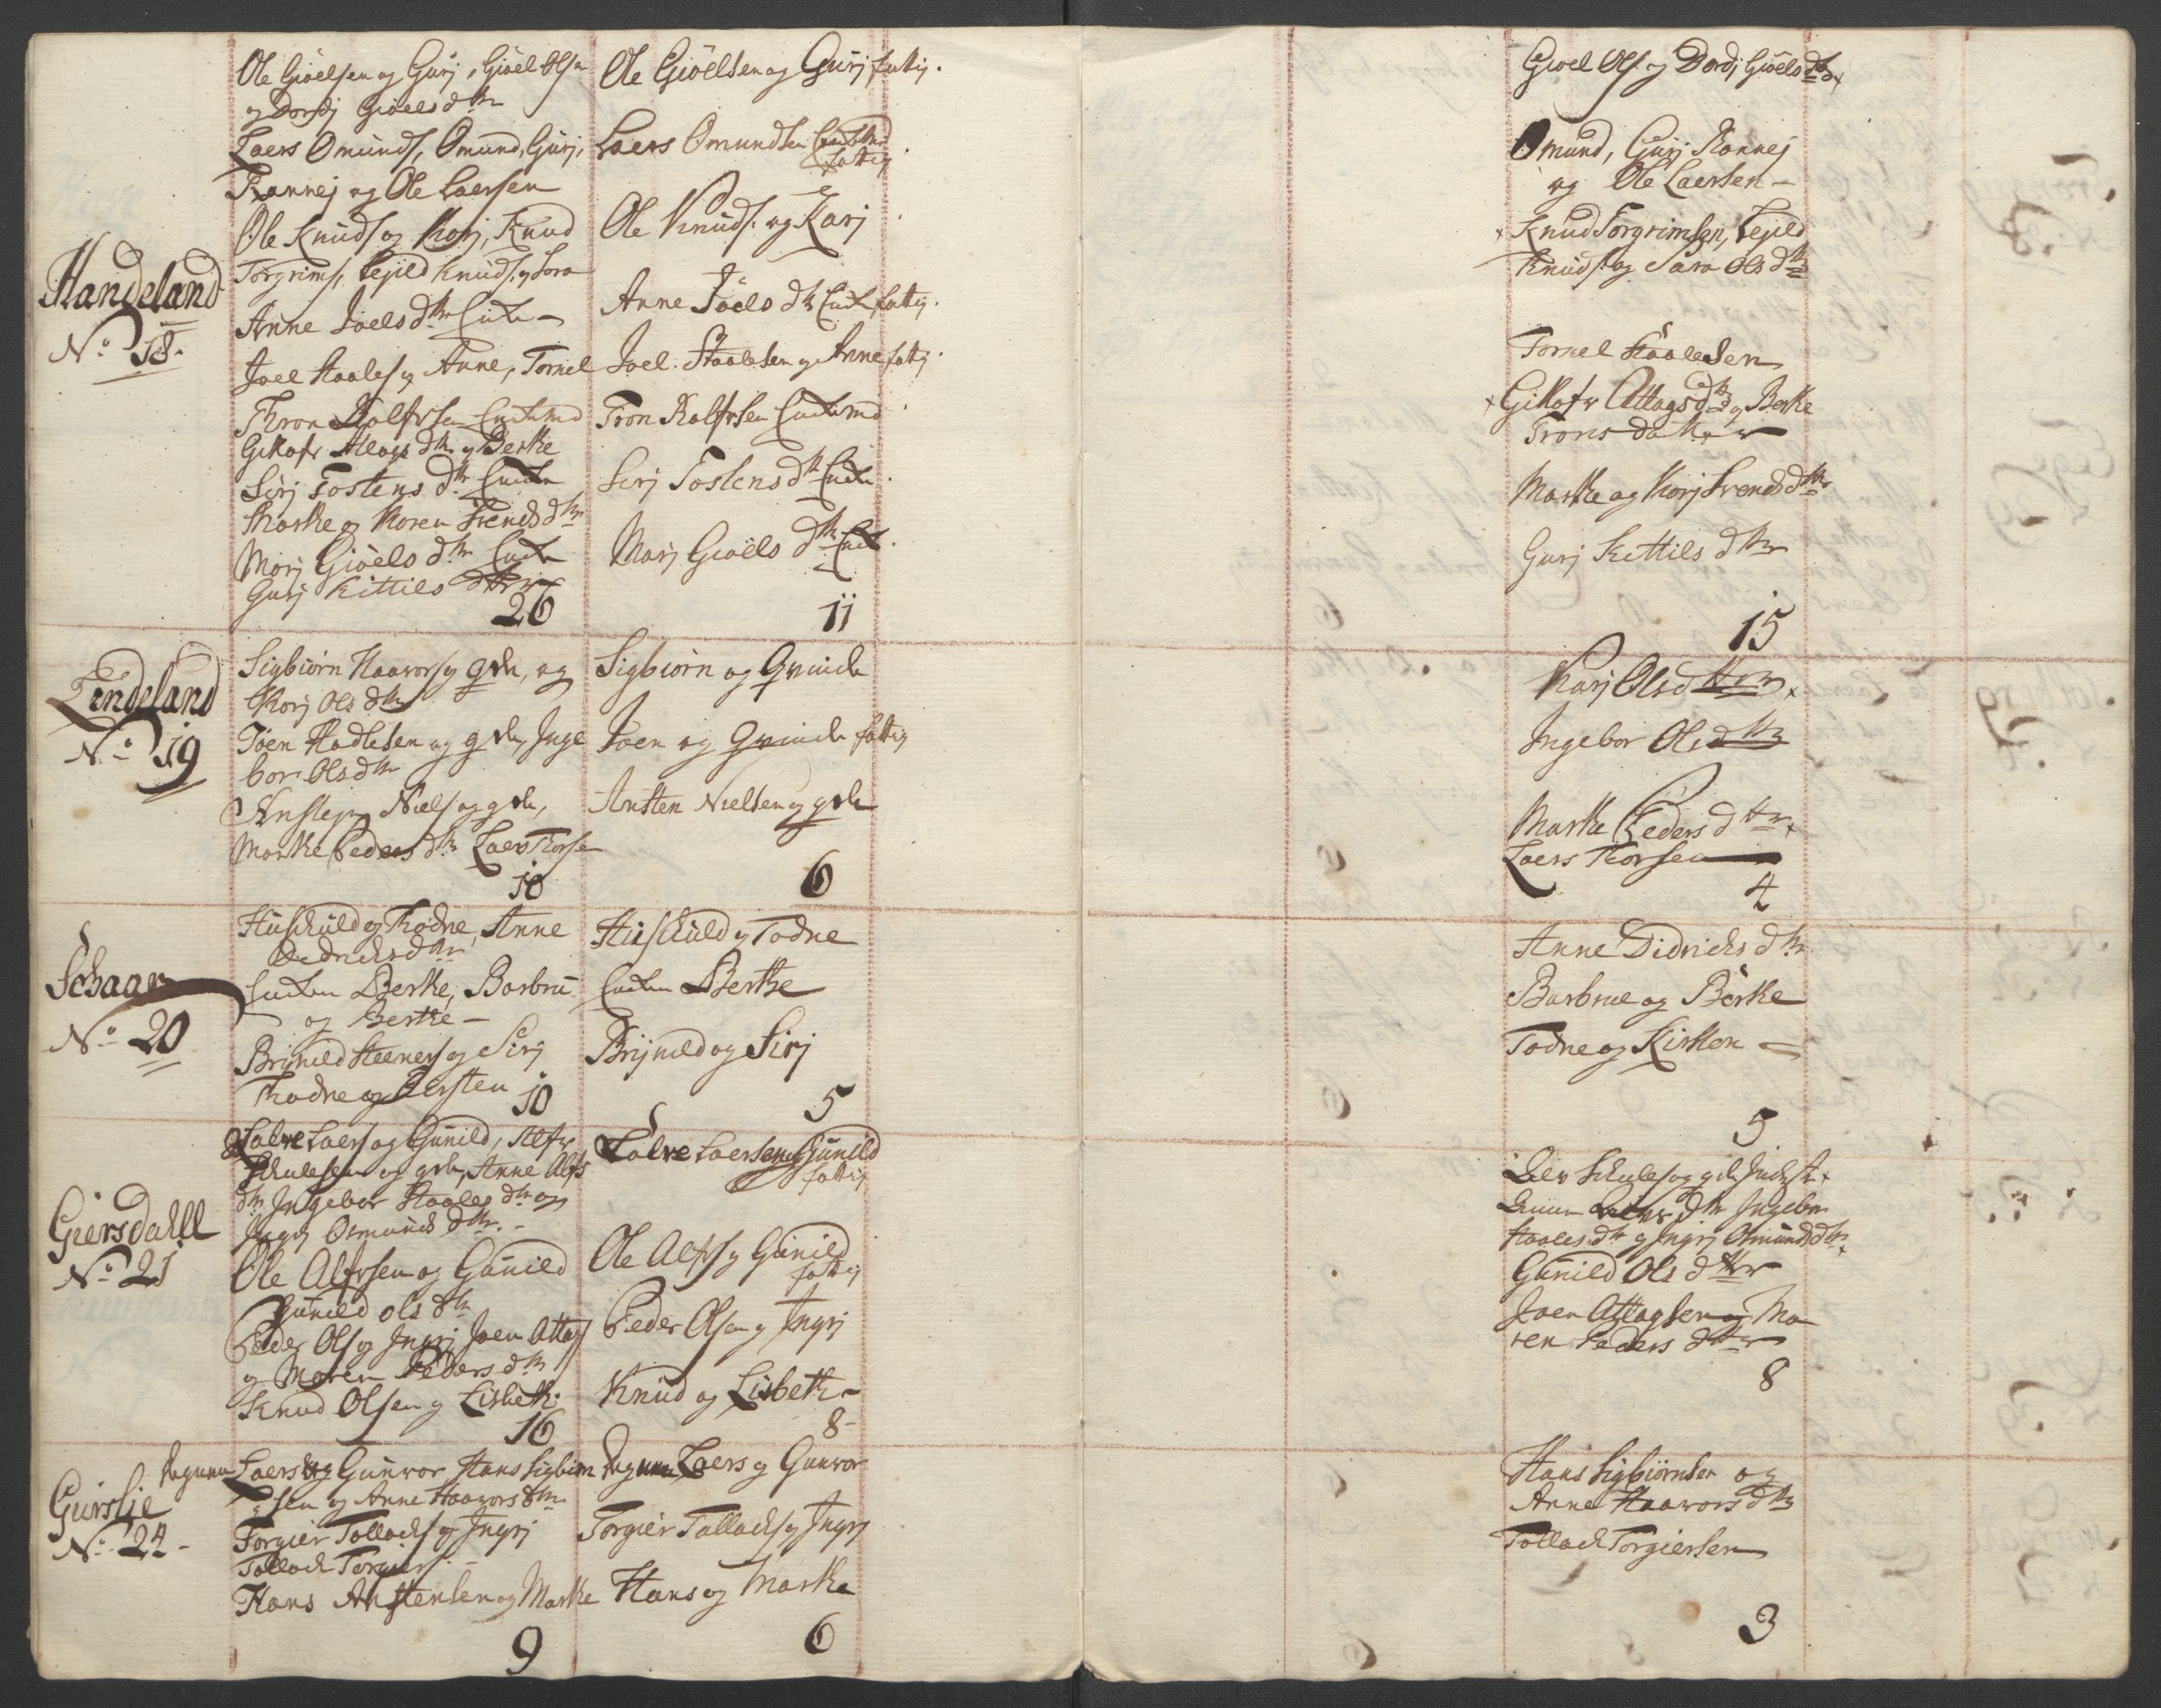 Handeland
No 18.
Ole Gioelsen og Gurj, Gioel Olsen
og Dordj Gioels dtr
Laers Omunds, Omund, Gurj,
Rannej og Ole Laersen
Ole Knuds og Karj, Knud
Torgrims, Kejld Knuds. og Sara
Anne Joels dtr Encke
Joel Staales og Anne, Tornel
Thron Rolfsen Enckemd
Attags dtr og Berthe
Sirj Tostens dtr Encke
Marthe og Karen Svends dtr
Marj Gioels dtr Encke
Gurj Kittils dttr
26
Ole Gioelsen og Gurj fattig.
Laers Omundsen Enckemd
fattig
Ole Knuds. og Karj
Anne Joels dtr Encke fattig.
Joel Staalesen og Anne fattig.
Tron Rolfsen Enckemd
Sirj Tostens dtr Encke
Marj Gioels dtr Encke
11
Gioel Ols og Dordj Gioels dtr
Omund, Gurj Rannej
og Ole Laersen
Knud Torgrimsen, Kejld
Knuds og Sara Ols dtr
Tornel Staalesen
Attags dtr og Berthe
Trons dotter
Marthe og Karj Svends dtr
Gurj Kittils dtr
15
Lindeland
No 19
Sigbiørn Haavors og qvde, og
Karj Ols dtr
Joen Hadlesen og qvde, Inge
bor Ols dtr
Ansten Niels og qvde,
Marthe Peders dtr Laers Thorsen
10
Sigbiørn og Qvinde
Joen og Qvinde fattig
Ansten Nielsen og qvde
6
Karj Ols dttr
Ingebor Ols dtr
Marthe Peders dttr
Laers Thorsen
4
Schaar
No 20
Huschuld og Thodne, Anne
Didrichs dtr
Encken Berthe, Barbru
og Berthe
Brynild Steeners og Sirj
Thodne og Kirsten
10
Huschuld og Todne
Encken Berthe
Brynild og Sirj
5
Anne Didrichs dtr
Barbrue og Berthe
Todne og Kirsten
5
Giersdahll
No 21
Salve Laers og Gunild, Alf
Schulesen og qvde, Anne Alfs
dtr, Ingebor Staales dtr og
Ingrj Osmunds dtr.
Ole Alfsen og Gunild
Gunild Ols dtr
Peder Ols og Ingrj, Joen Attags
og Maren Peders dtr
Knud Olsen og Lisbeth
16
Salve Laersen og Gunild
fattig
Ole Alfs og Gunild
fattig
Peder Olsen og Ingrj
Knud og Lisbeth
8
Schules og qvde
dtr Ingebor
Staales dtr og Ingrj Osmunds dtr
Gunild Ols dttr
Joen Attagsen og Ma
ren Peders dttr
8
Gurslie
No 22
Laers og Gunvor, Hans Sigbiørn
sen og Anne Haavors dtr
Torgier Tollachs og Ingrj
Tollach Torgiers.
Hans Anstensen og Marthe
9
Laers og Gunvor
Torgier Tallachs og Ingrj
Hans og Marthe
6
Hans Sigbiørnsen og
Anne Haavors dtr
Tollach Torgiersen
3